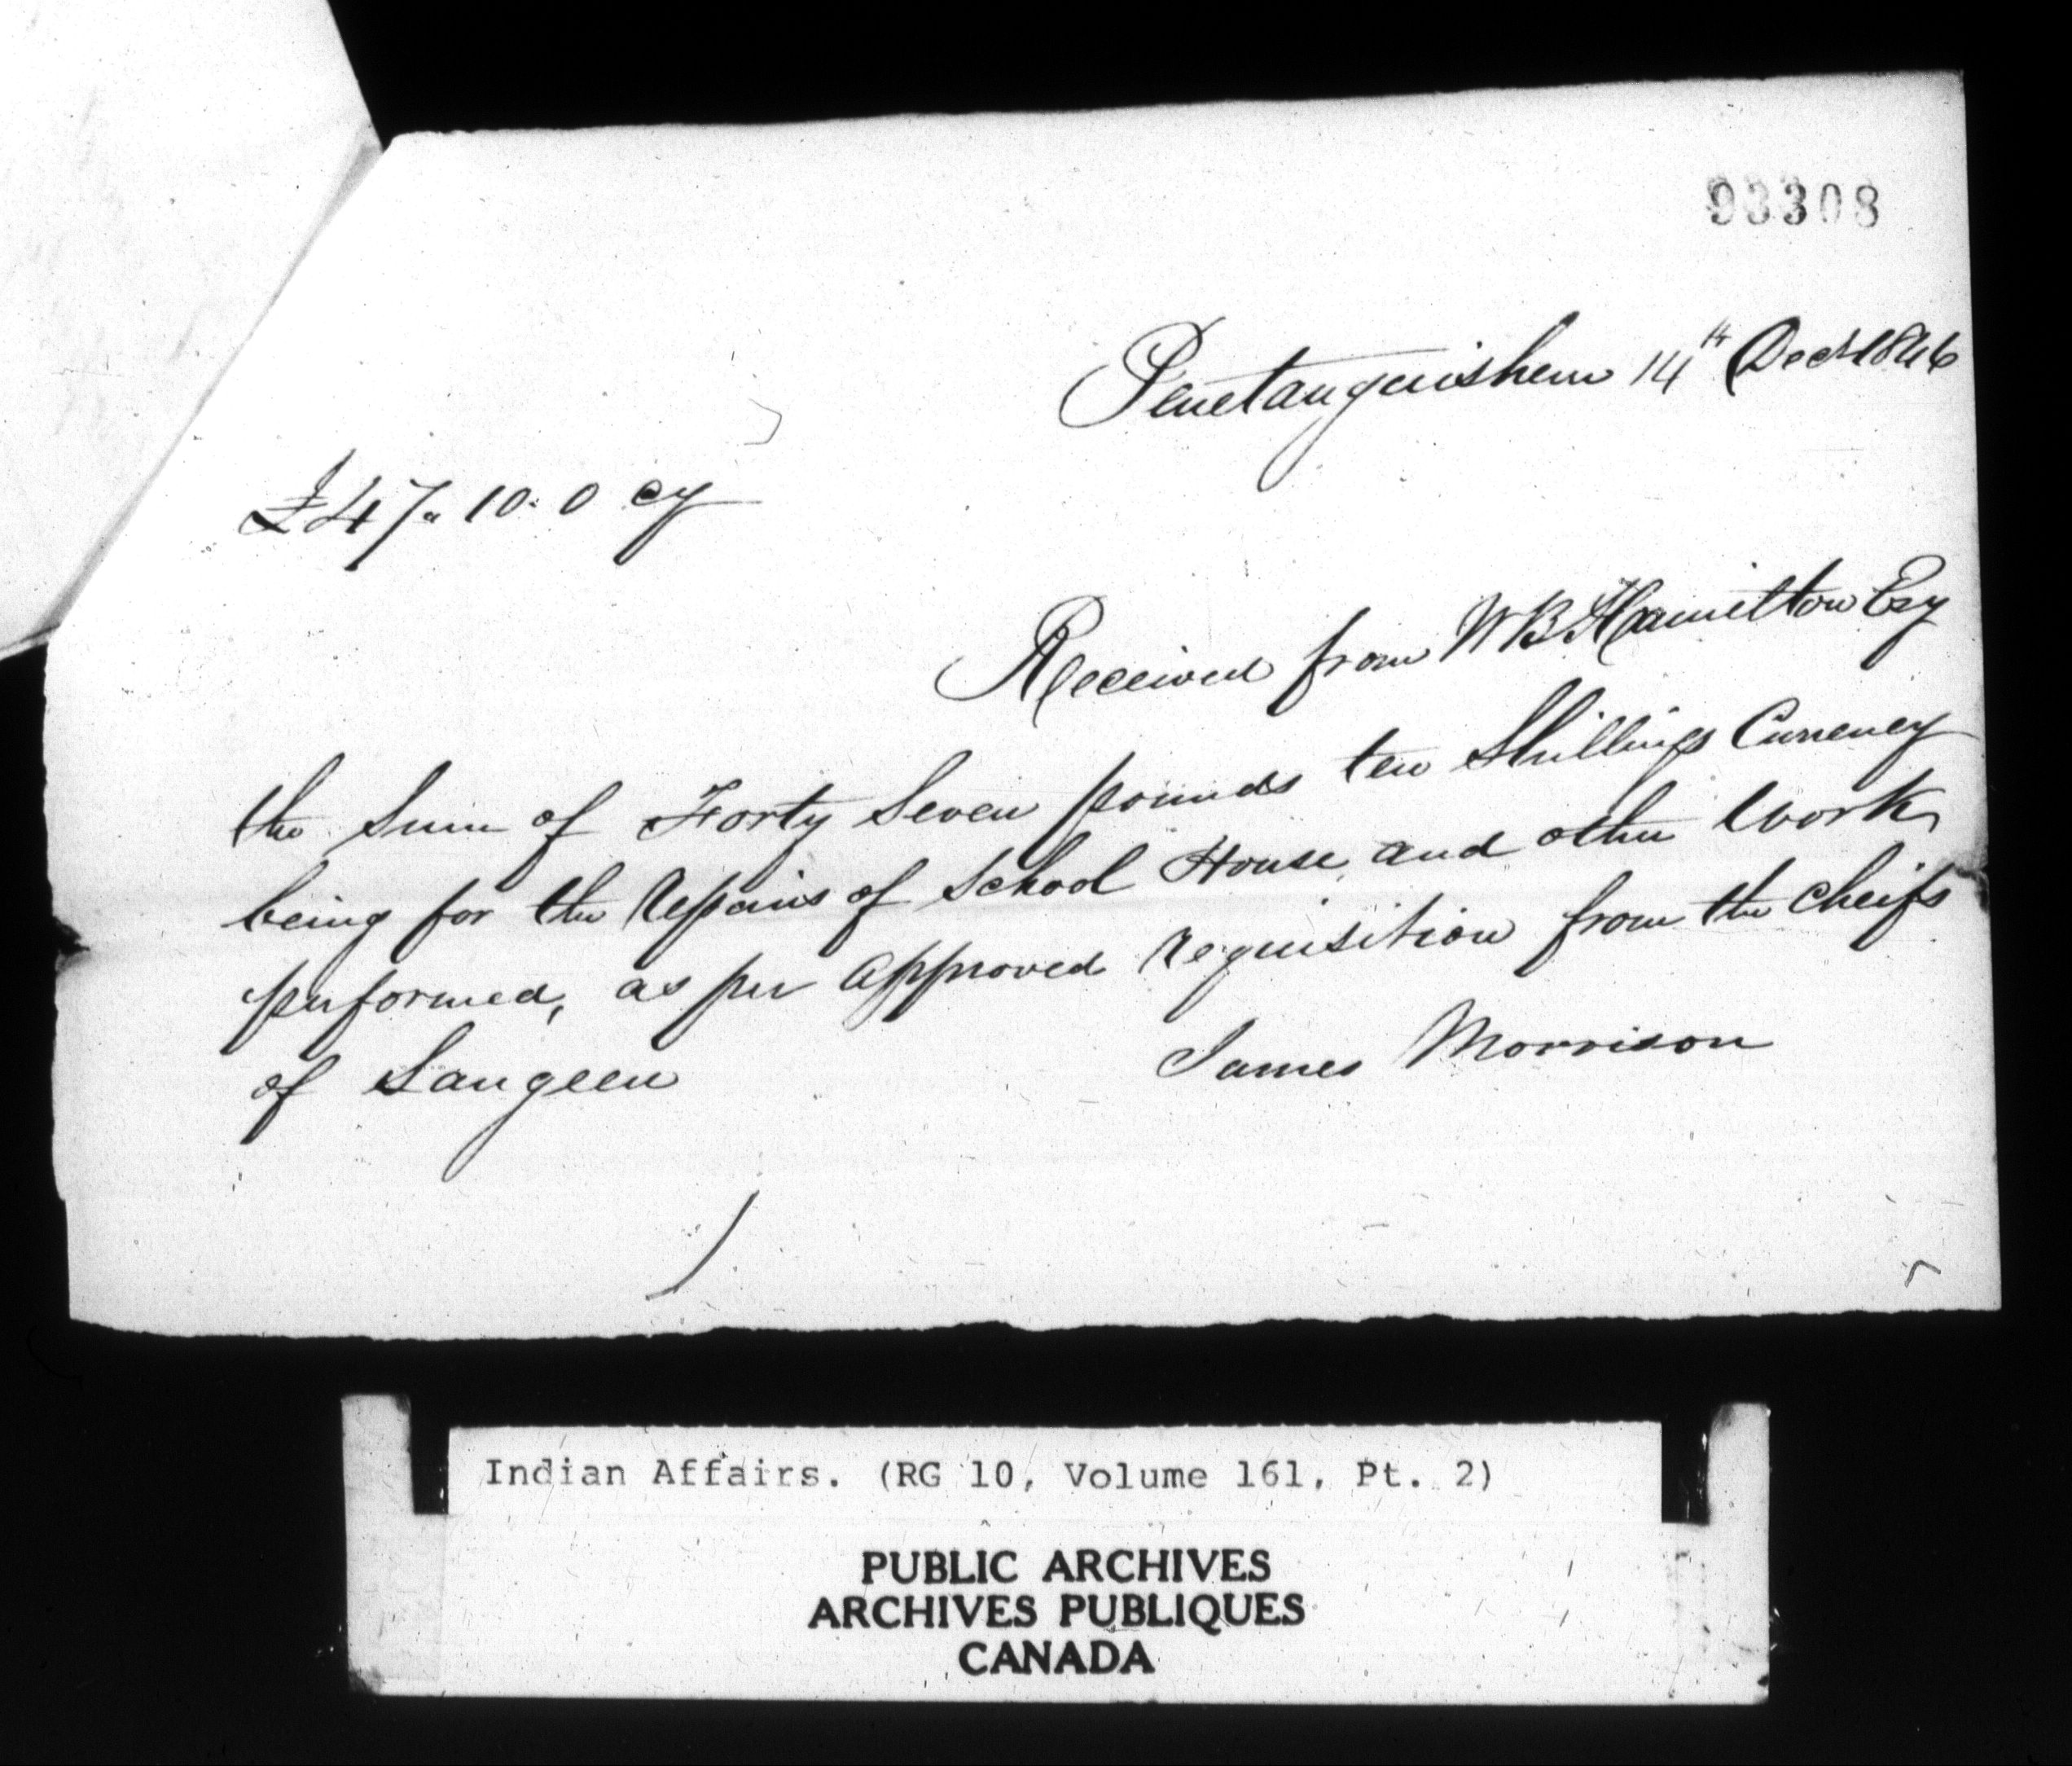 93308
Penetanguishem 14th Decr 1846
£47. 10. 0 Cy
Received from W B Hamilton Esq
the Sum of Forty Seven pounds ten Shillings Currency
being for the repairs of School House, and other Work
performed, as per approved requisition from the Cheifs
of Saugeen
James Morrison
Indian Affairs. (RG 10, Volume 161, Pt. 2)
PUBLIC ARCHIVES
ARCHIVES PUBLIQUES
CANADA